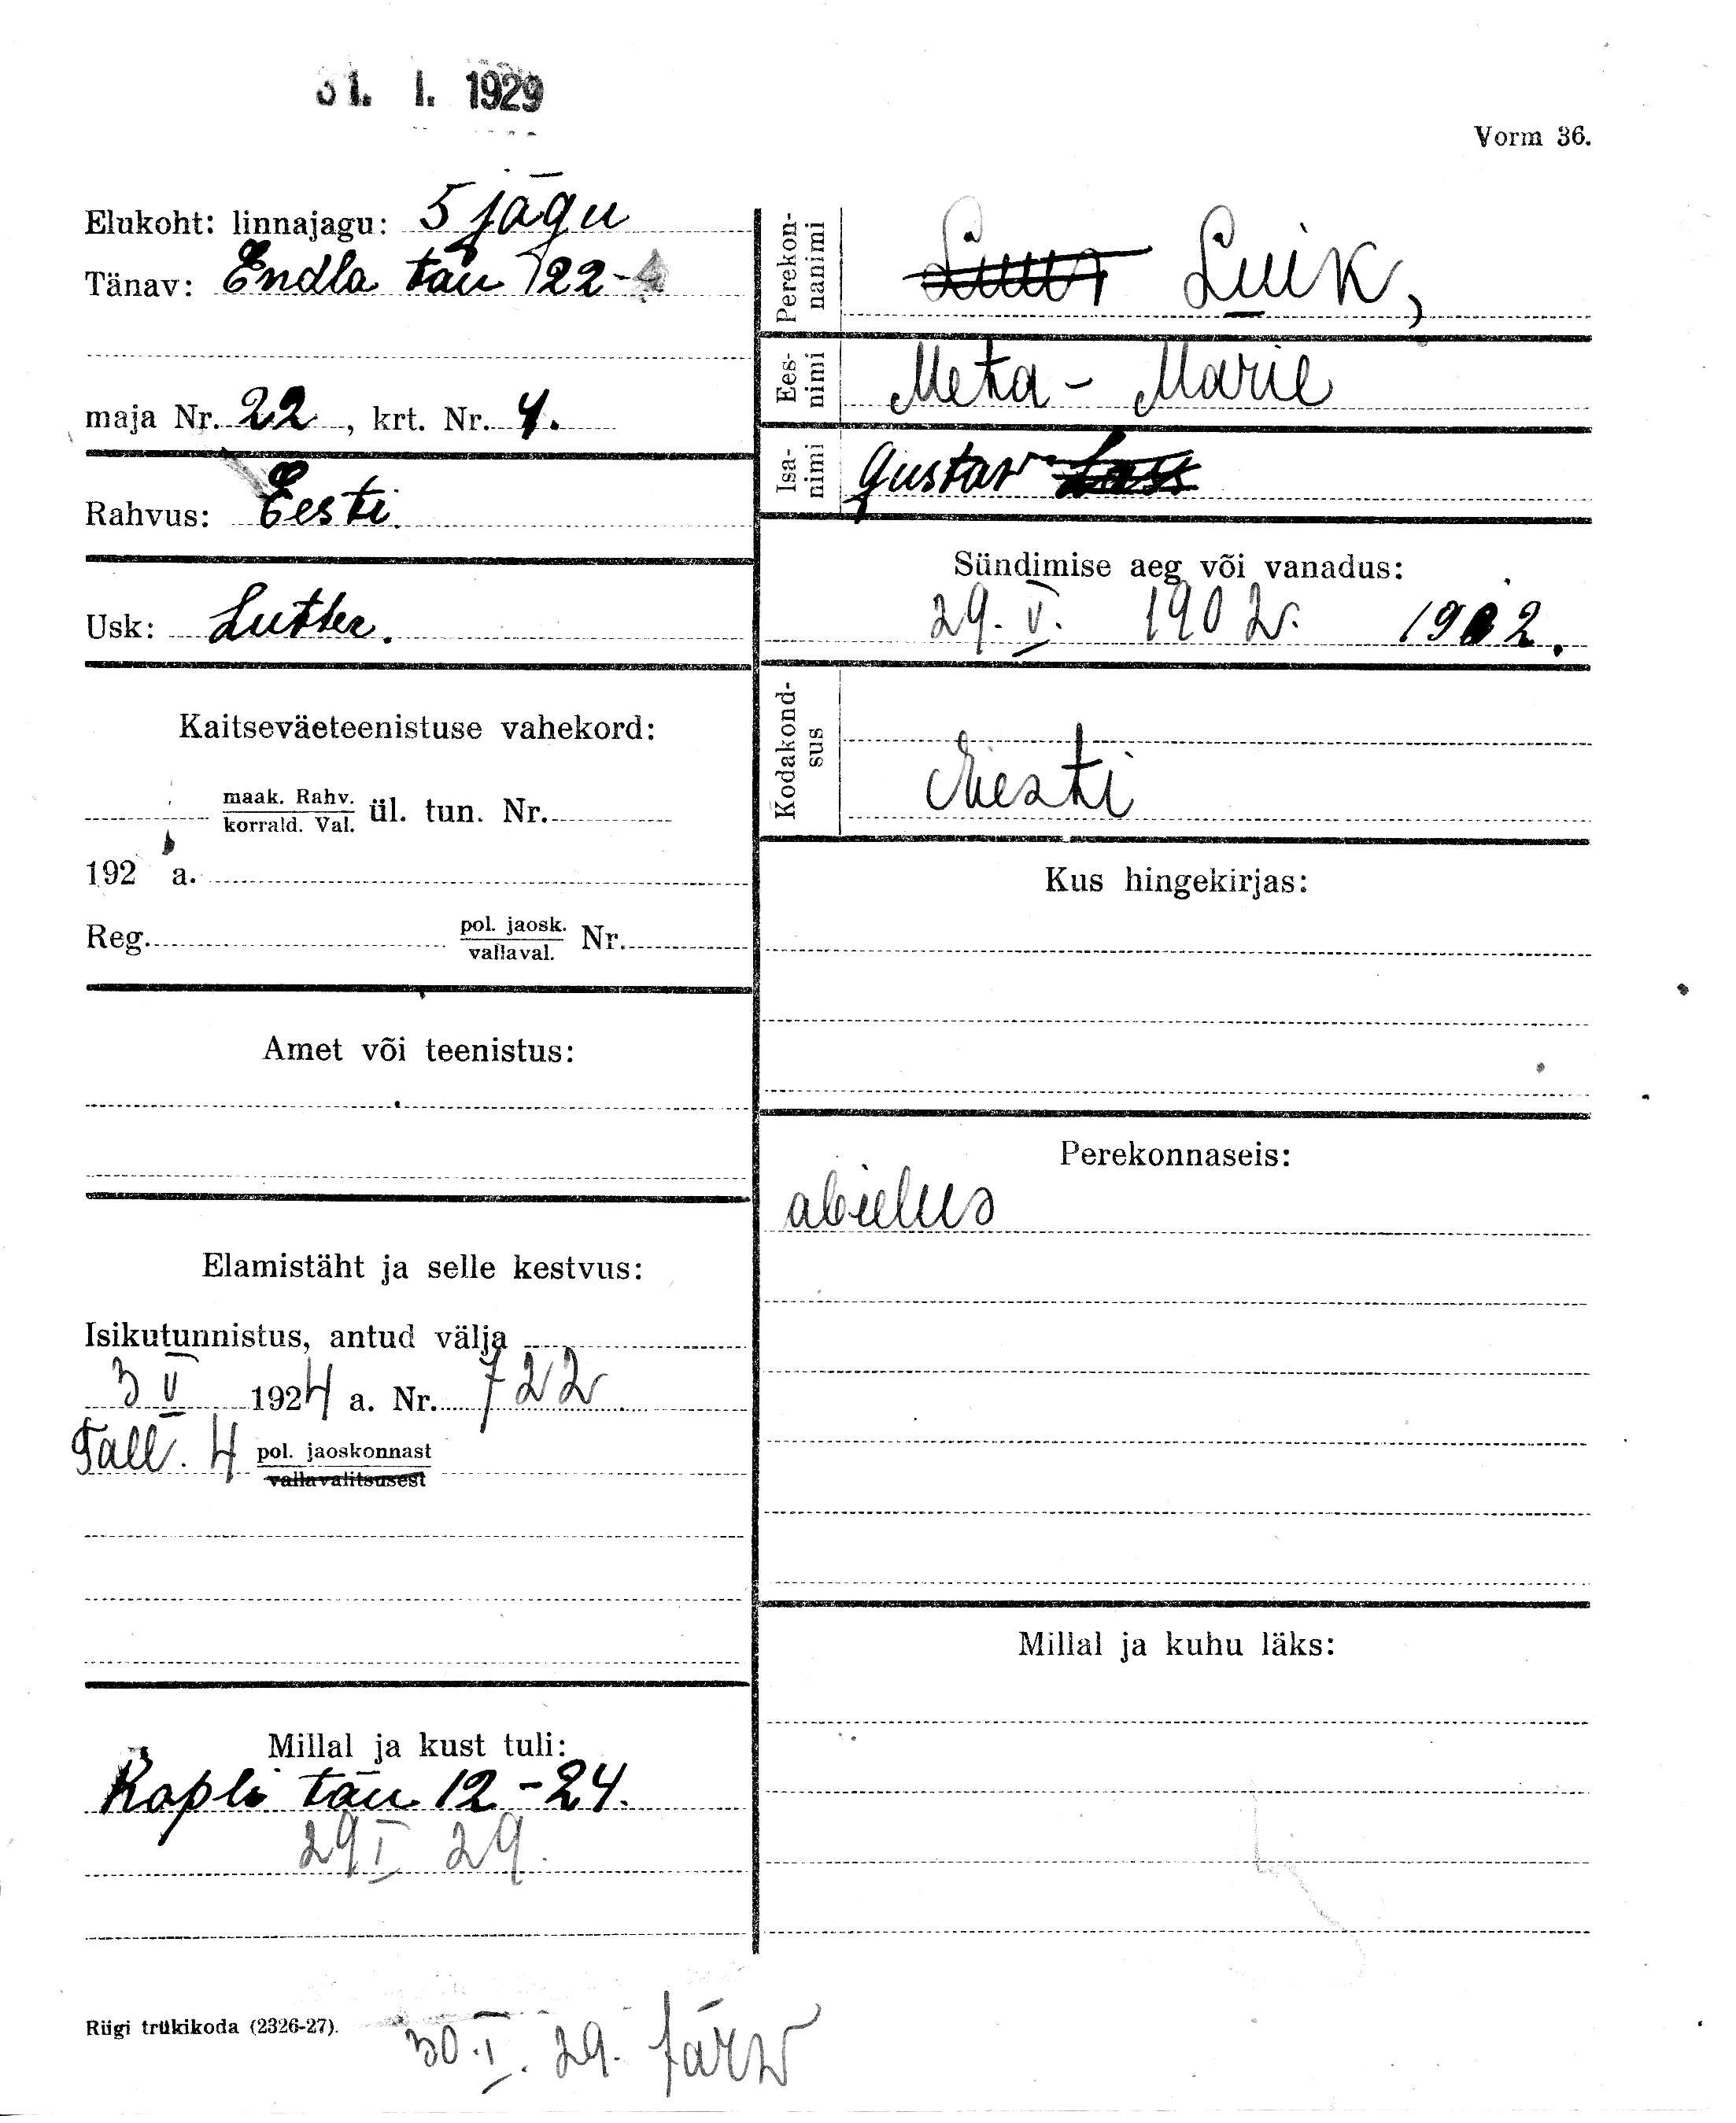 31. I. 1929
Vorm 36.
Elukoht: linnajagu: 5 jagu
Tänav: Endla tän 22-4
maja Nr. 22, krt. Nr. 4.
Rahvus: Eesti.
Usk: Luther.
Kaitseväeteenistuse vahekord:
maak. Rahv.
korrald. Val. ül. tun. Nr.
192 a.
Reg. pol. jaosk.
vallaval. Nr.
Amet või teenistus:
Elamistäht ja selle kestvus:
Isikutunnistus, antud välja
3 V 1924 a. Nr. 722
Tall. 4 pol. jaoskonnast
vallavalitsusest
Millal ja kust tuli:
Kopli tän 12-24.
29 I 29.
Perekon-
nanimi
Luik,
Ees-
nimi
Meta-Marie
Isa-
nimi
Gustav
Sündimise aeg või vanadus:
29. V. 1902. 1902.
Kodakond-
sus
Eesti
Kus hingekirjas:
Perekonnaseis:
abielus
Millal ja kuhu läks:
Riigi trükikoda (2326-27).
30. I. 29. Järv